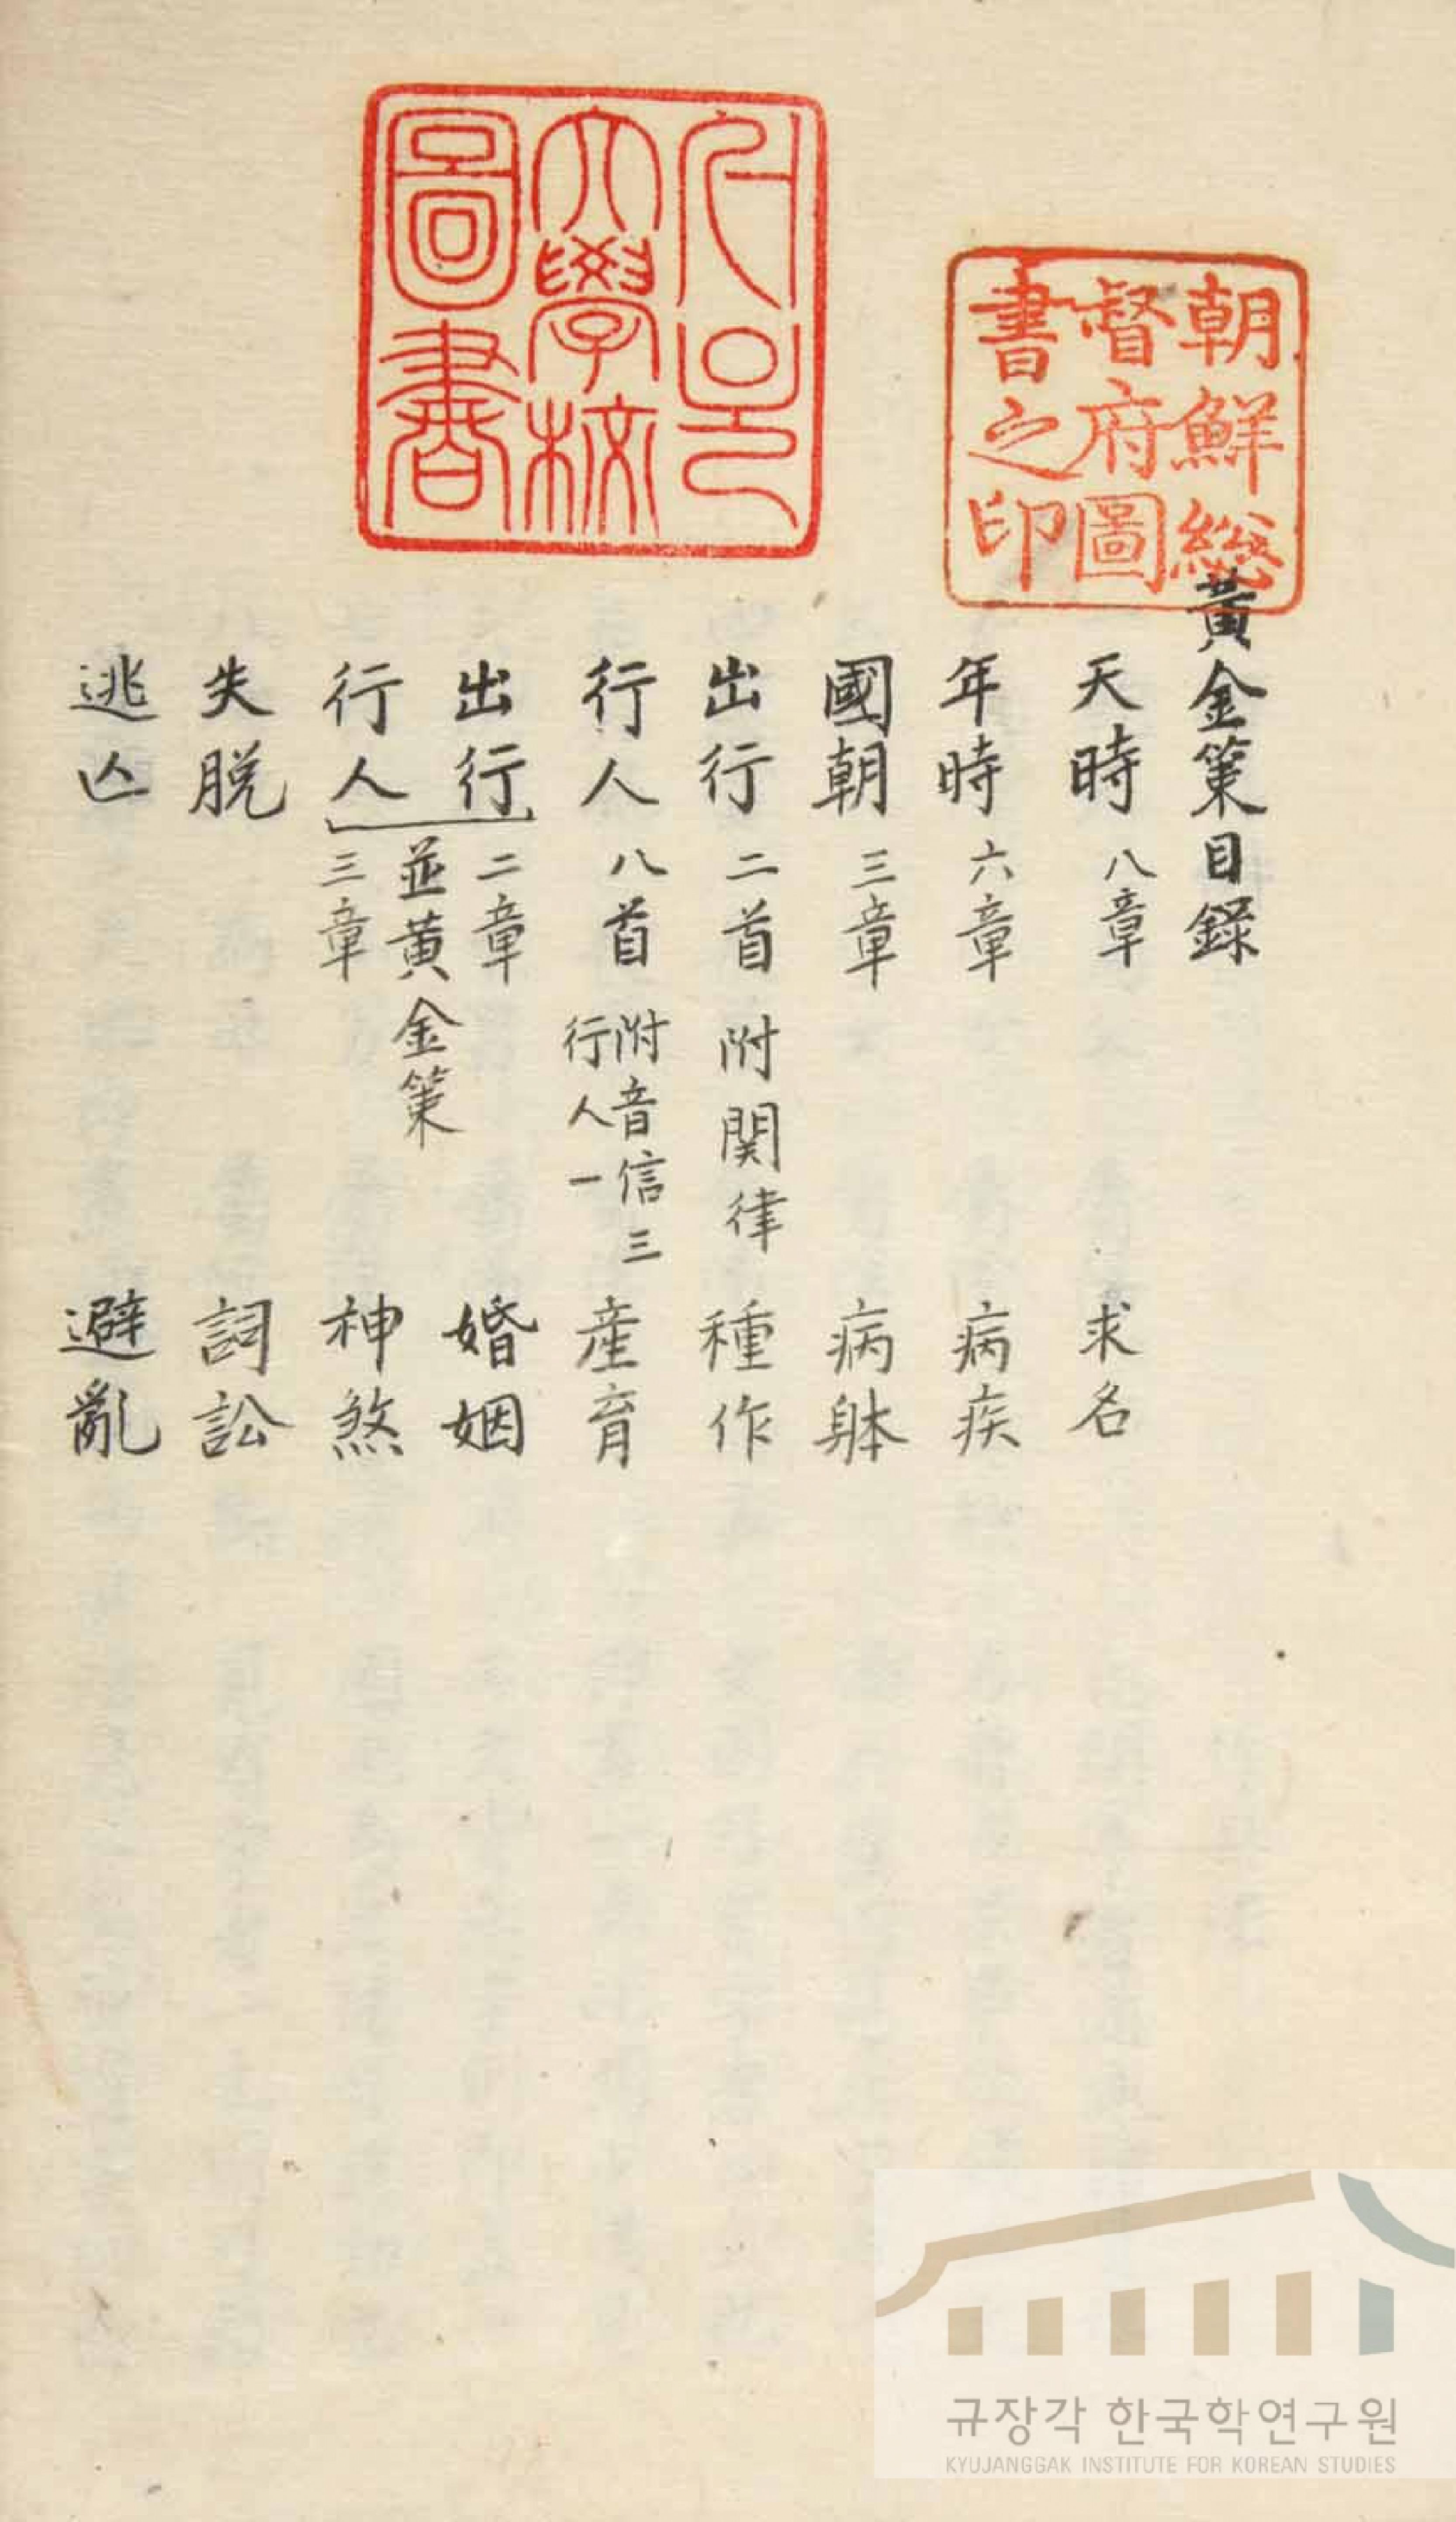 朝鮮総
督府圖
書之印
서울
大學校
圖書
黃金策目錄
天時 八章 求名
年時 六章 病疾
國朝 三章 病躰
出行 二首 附関律 種作
行人 八首 附音信三 行人一 産育
出行 二章 婚姻
並黃金策
行人 三章 神煞
失脱 詞訟
逃亾 避亂
규장각 한국학연구원
KYUJANGGAK INSTITUTE FOR KOREAN STUDIES